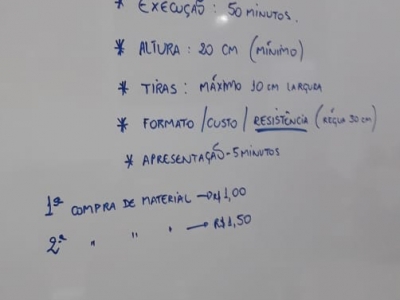 * EXECUÇÃO : 50 MINUTOS.
* ALTURA : 20 CM (MÍNIMO)
* TIRAS : MÁXIMO 10 CM LARGURA
* FORMATO / CUSTO / RESISTÊNCIA (RÉGUA 30 CM)
* APRESENTAÇÃO - 5 MINUTOS
1ª COMPRA DE MATERIAL → R$ 1,00
2ª " " " → R$ 1,50